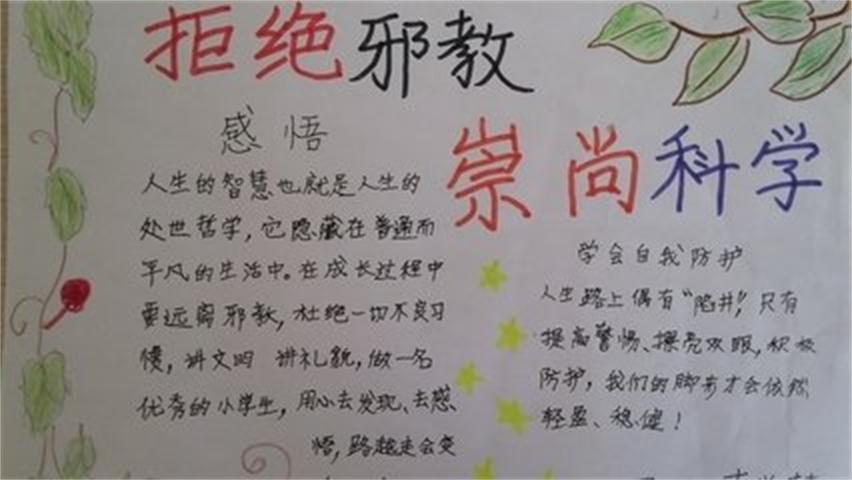 拒绝邪教
崇尚科学
感悟
人生的智慧也就是人生的
处世哲学,它隐藏在普通而
平凡的生活中。在成长过程中
要远离邪教,杜绝一切不良习
惯,讲文明 讲礼貌,做一名
优秀的小学生,用心去发现、去感
悟,路越走会变
学会自我防护
人生路上偶有“陷井”,只有
提高警惕、擦亮双眼,积极
防护,我们的脚步才会依然
轻盈、稳健!